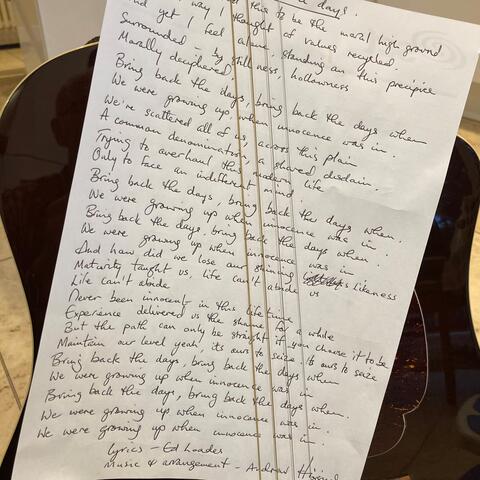 days.
this to be the moral high ground
way I thought of values recycled
And yet I feel alone, standing on this precipice
Surrounded - by stillness, hollowness
Morally deciphered
Bring back the days, bring back the days when
We were growing up, when innocence was in.
We're scattered all of us, across this plain
A common denomination, a shared disdain.
Trying to overhaul this modern life
Only to face an indifferent mind.
Bring back the days, bring back the days when.
We were growing up when innocence was in.
Bring back the days, bring back the days when.
We were growing up when innocence was in
And how did we lose our shining likeness
Maturity taught us, life can't abide us
Life can't abode
Never been innocent in this lifetime
Experience delivered us the shame for a while
But the path can only be straight if you choose it to be
Maintain our level yeah, its ours to seize its ours to seize
Bring back the days, bring back the days when
We were growing up when innocence was in
Bring back the days, bring back the days when.
We were growing up when innocence was in.
We were growing up when innocence was in.
Lyrics - Ed Loades
Music & arrangement - Andrew